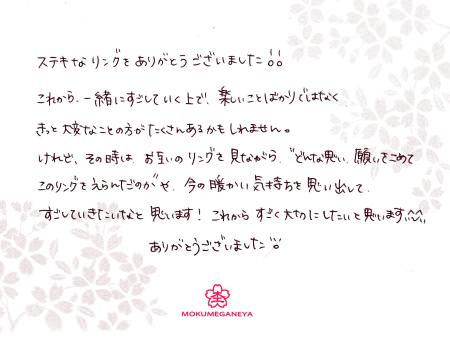 ステキなリングをありがとうございました!!
これから、一緒にすごしていく上で、楽しいことばかりではなく
きっと大変なことの方がたくさんあるかもしれません。
けれど、その時は、お互いのリングを見ながら、"どんな思い、願いをこめて
このリングをえらんだのか"や、今の暖かい気持ちを思い出して、
すごしていきたいなと思います! これからすごく大切にしたいと思います!!
ありがとうございました!!
MOKUMEGANEYA